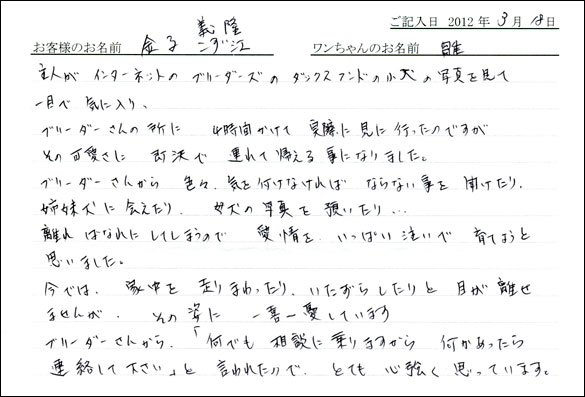 ご記入日 2012年3月18日
お客様のお名前 金子 義隆 こず江 ワンちゃんのお名前 雅
主人が インターネットの ブリーダーズの ダックスフンドの小犬の写真を見て
一目で 気に入り、
ブリーダーさんの所に 4時間かけて 実際に見に行ったのですが
その可愛さに 即決で 連れて帰える事になりました。
ブリーダーさんから 色々、気を付けなければ ならない事を 聞けたり、
姉妹犬に会えたり、 母犬の写真を 頂いたり…
離れ ばなれにしてしまうので 愛情を いっぱい注いで 育てようと
思いました。
今では、 家中を 走りまわったり、いたずらしたりと 目が離せ
ませんが、 その姿に 一喜一憂しています
ブリーダーさんから、「何でも 相談に乗りますから 何かあったら
連絡して下さい」と 言われたので、とても 心強く 思っています。